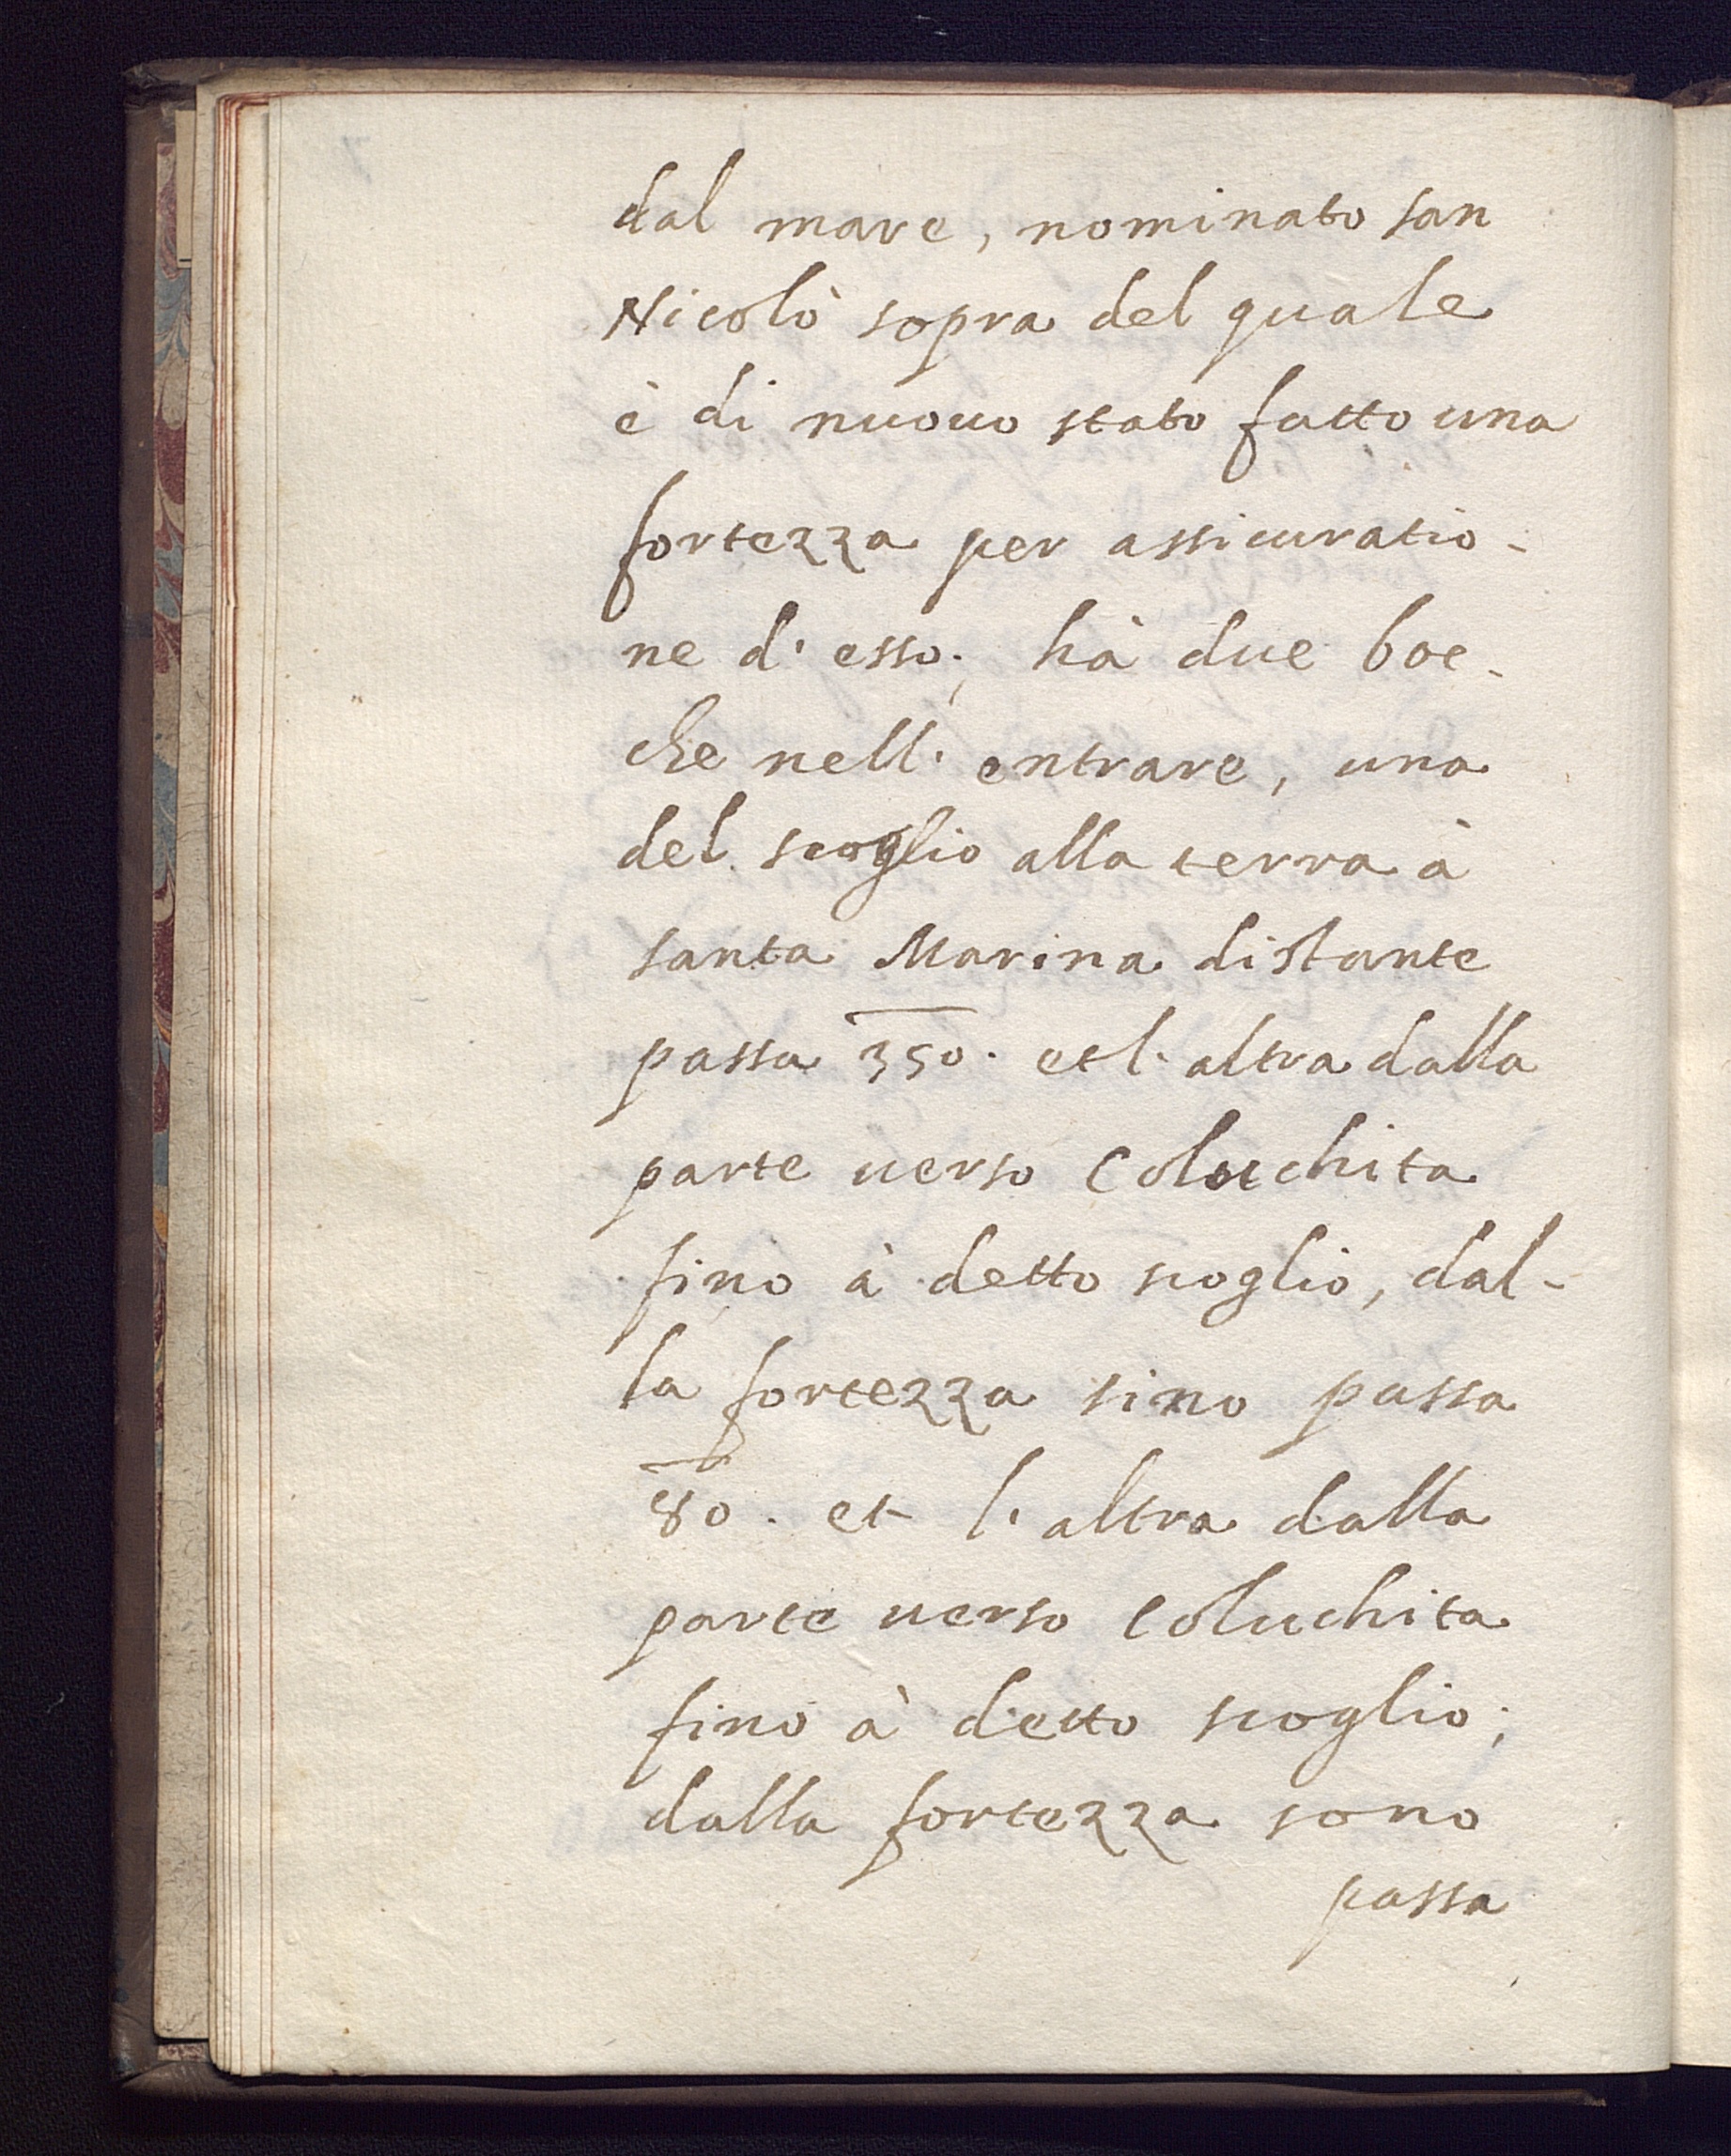 dal mare, nominato san
Nicolò sopra del quale
è di nuouo stato fatto una
fortezza per assicuratio-
ne d'esso; hà due boc-
che nell'entrare, una
del scoglio alla terra à
santa Marina distante
passa 350. et l'altra dalla
parte uerso Coluchita
fino à detto scoglio, dal-
la fortezza sino passa
80. et l'altra dalla
parte uerso Coluchita
fino à detto scoglio;
dalla fortezza sono
passa